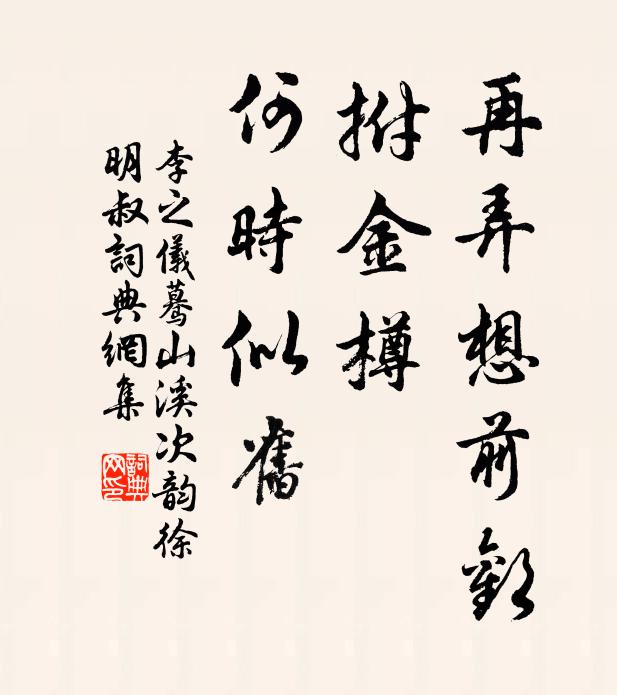 再弄想前歡
拊金樽
何時似舊
李之儀驀山溪次韵徐
明叔詞典網集
詞典
网印